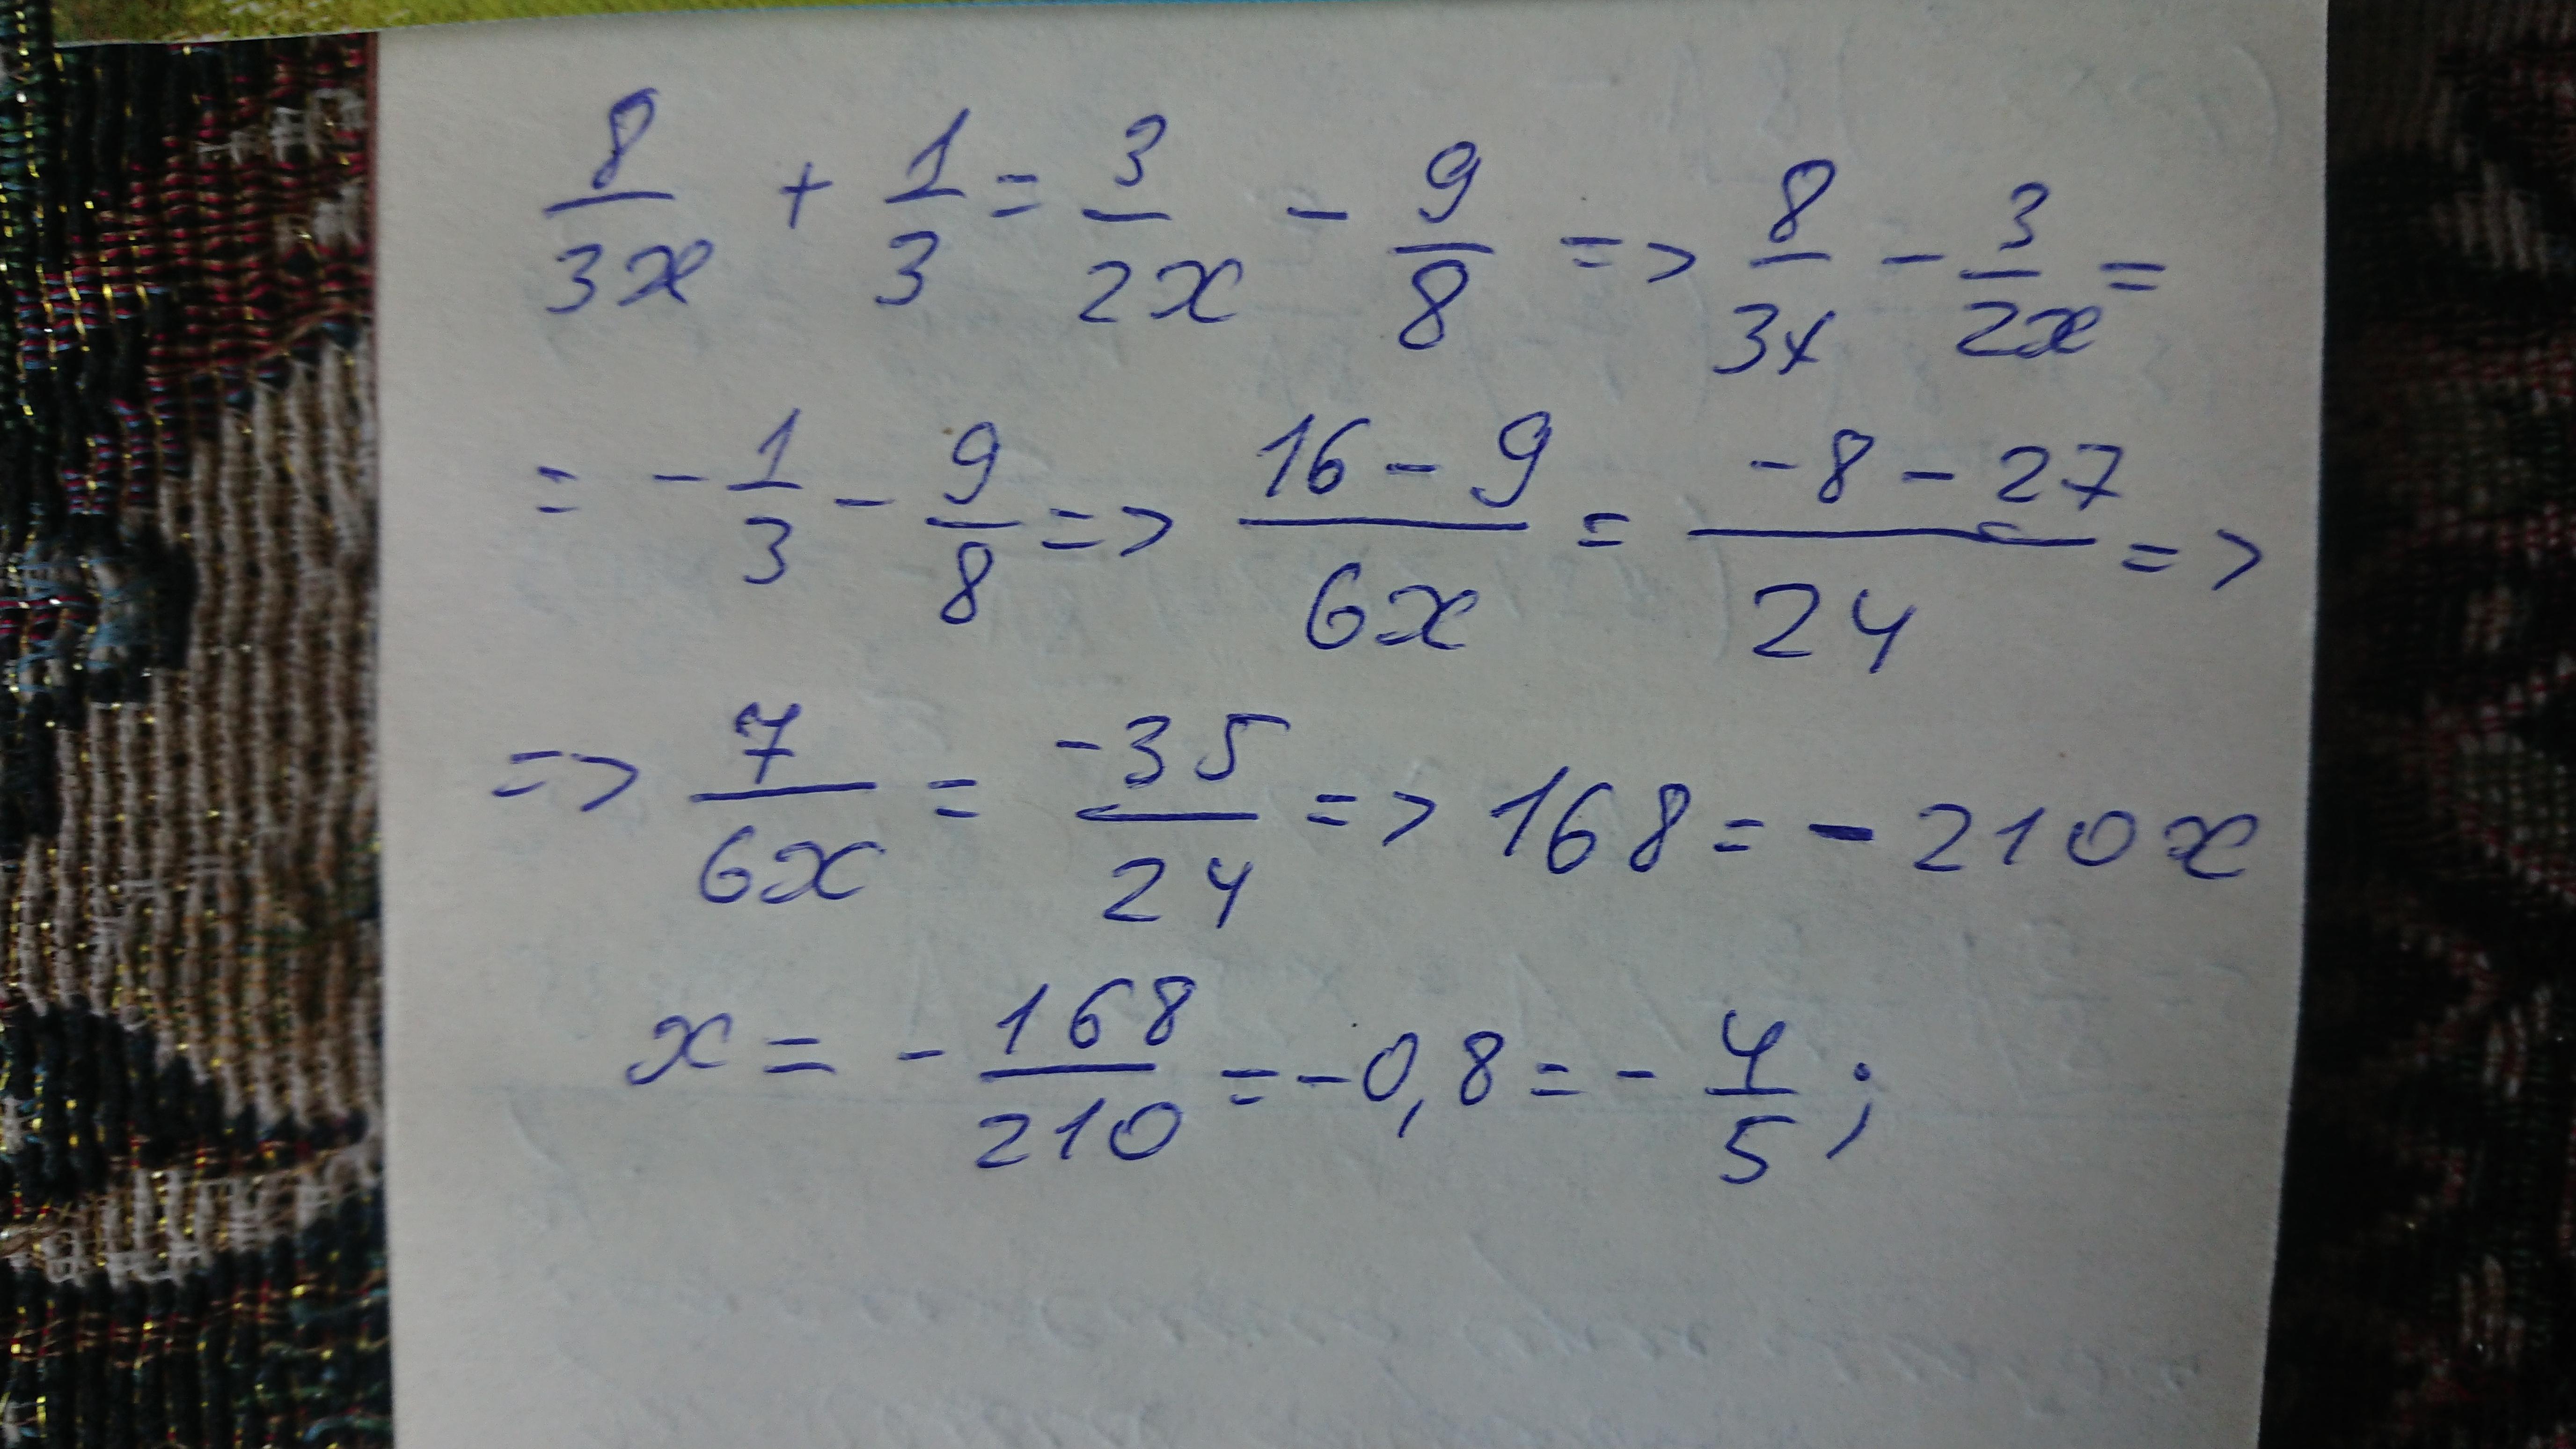 8/3x + 1/3 = 3/2x - 9/8 => 8/3x - 3/2x =
= - 1/3 - 9/8 => 16 - 9/6x = -8 - 27/24 =>
=> 7/6x = -35/24 => 168 = - 210x
x = - 168/210 = -0,8 = - 4/5;